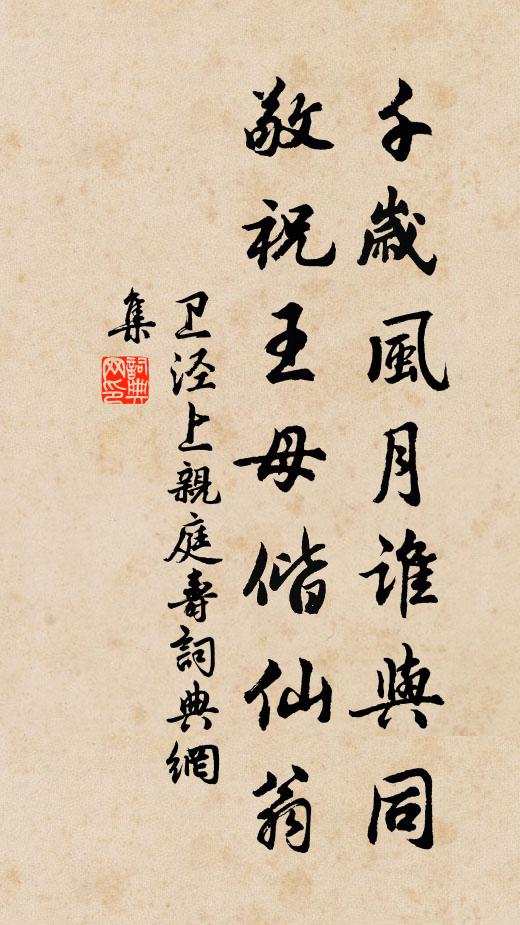 千歲風月誰與同
敬祝王母偕仙翁
卫泾上親庭壽詞典網
集
詞典网印